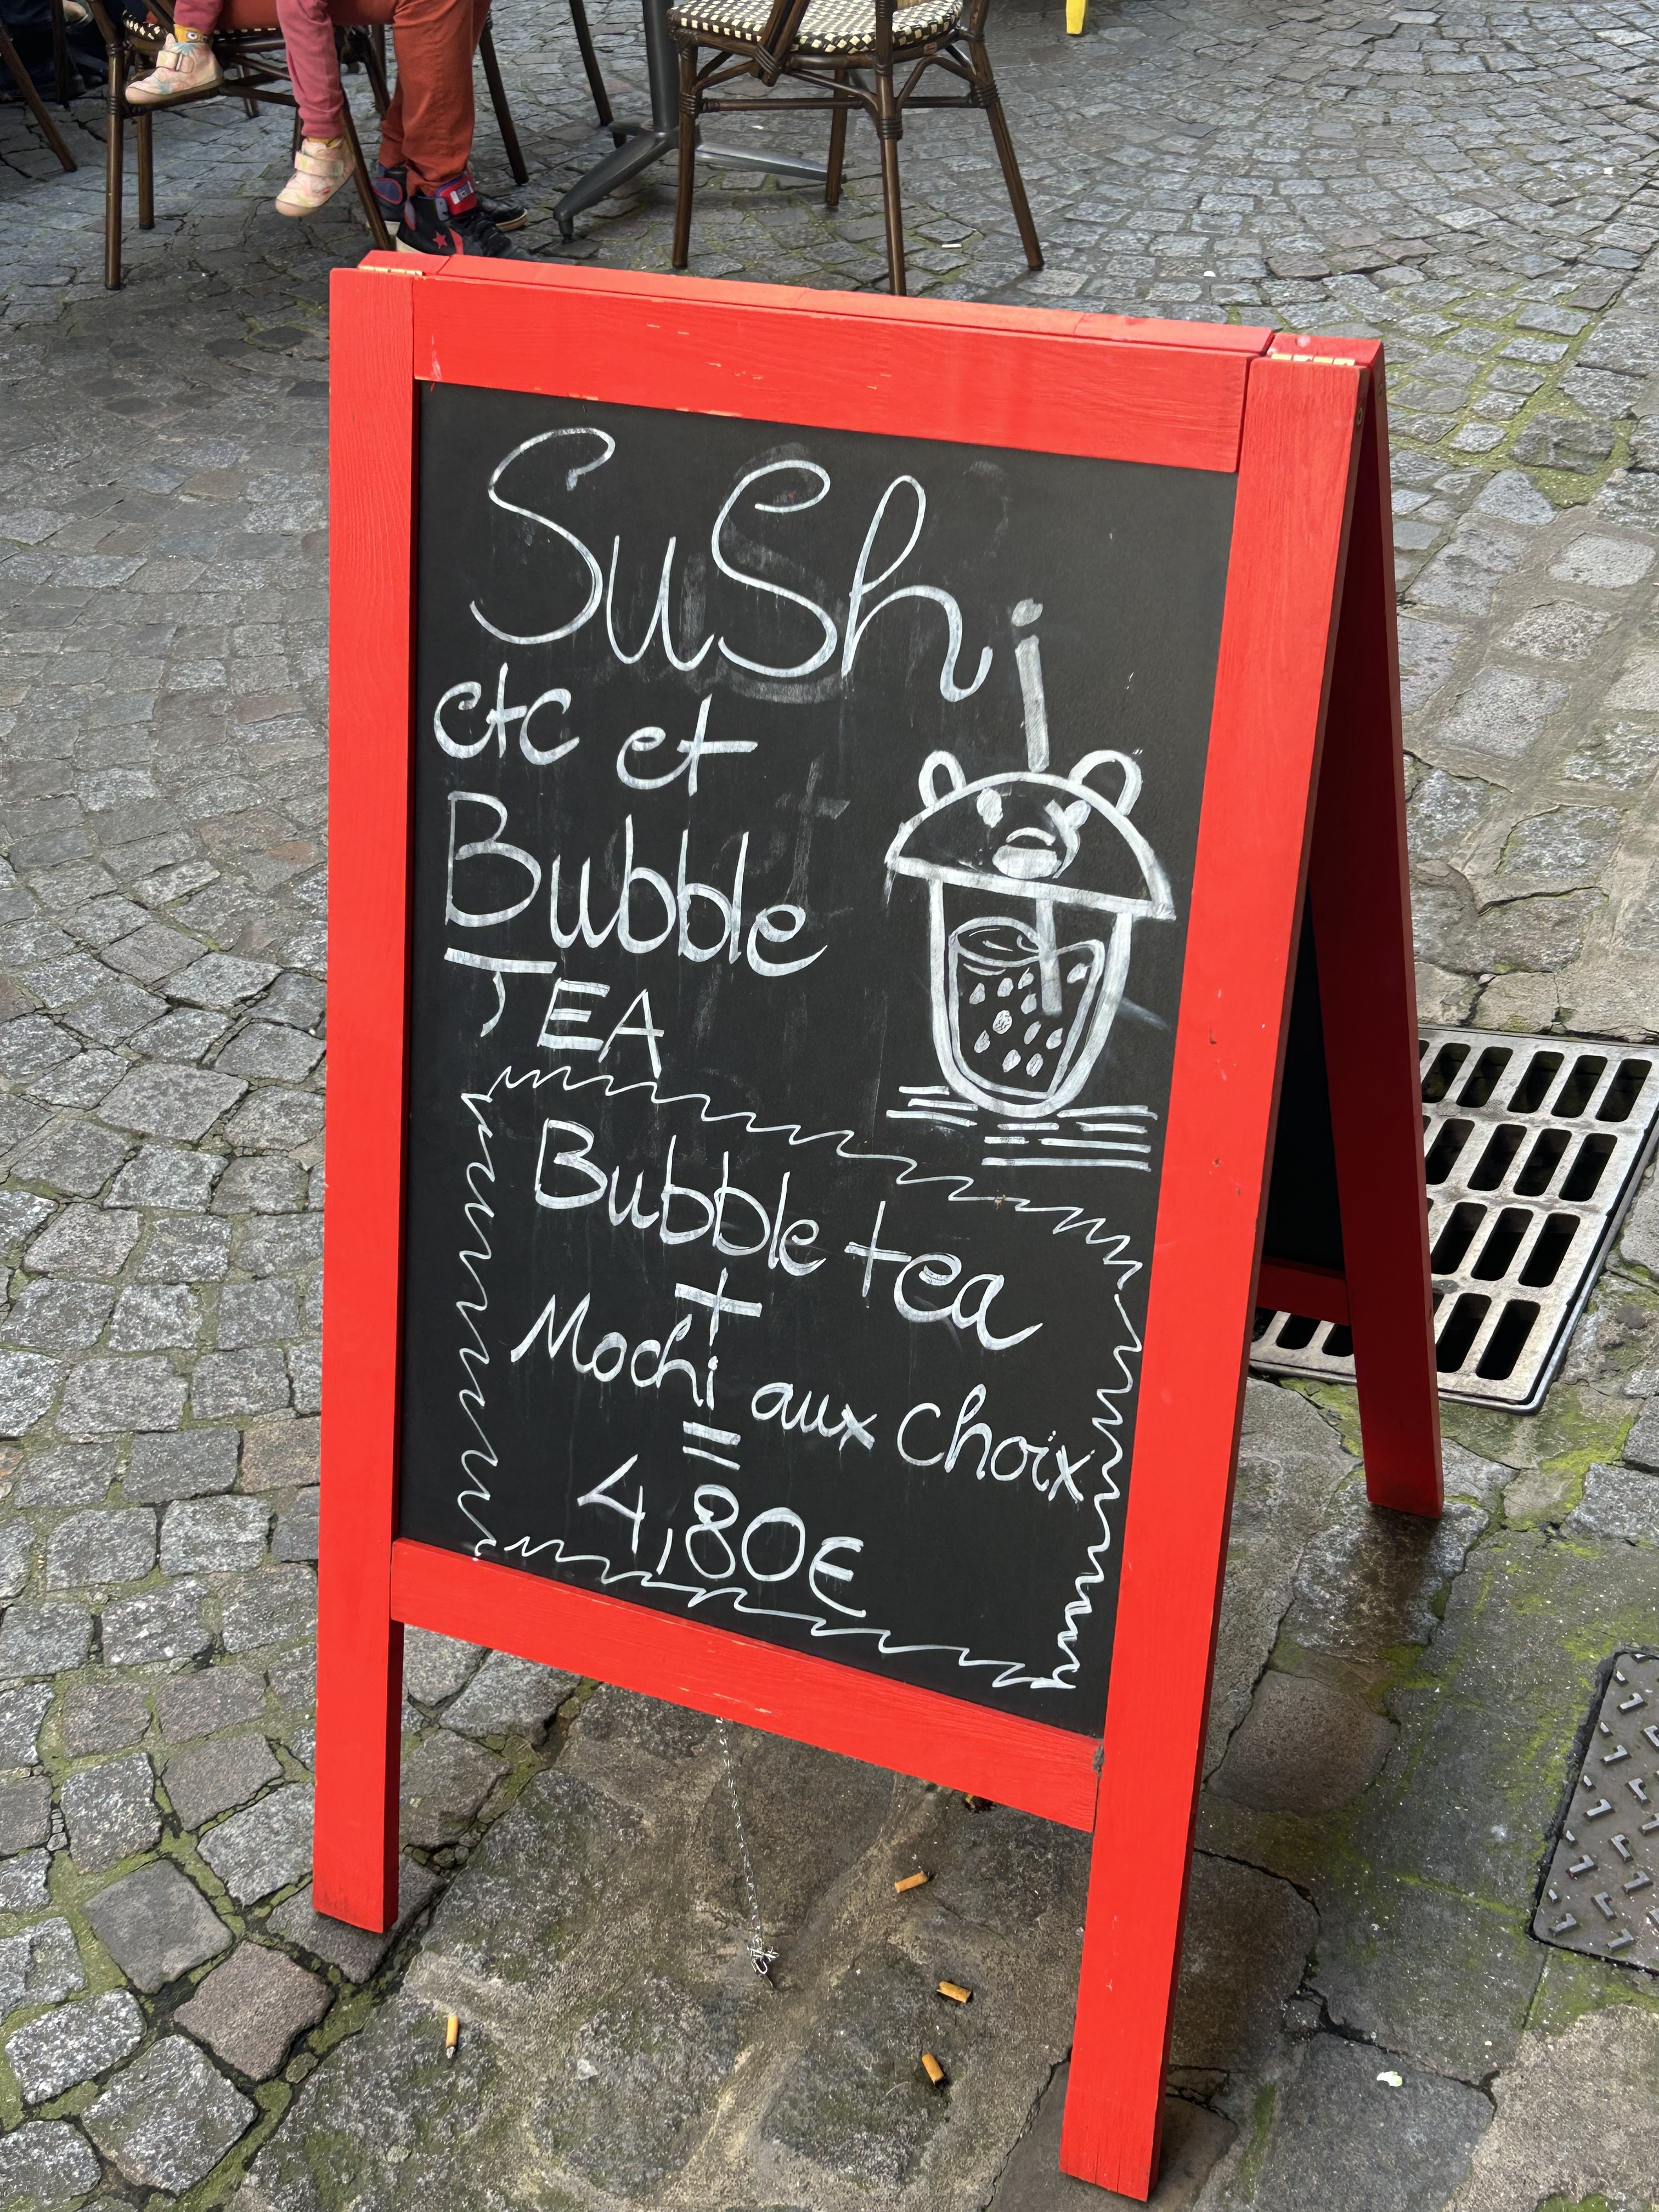 SuShi
etc et
Bubble
TEA
Bubble tea
+
Mochi aux choix
=
4,80€